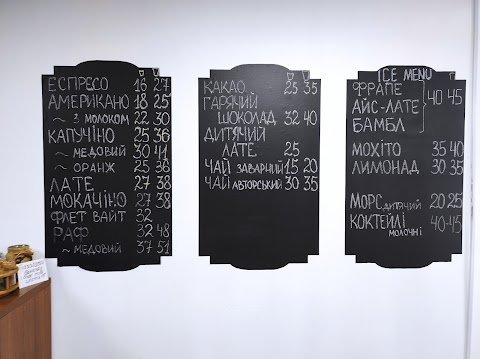 ЕСПРЕСО 16 27
АМЕРИКАНО 18 25
~ З МОЛОКОМ 22 30
КАПУЧІНО 25 36
~ МЕДОВИЙ 30 41
~ ОРАНЖ 25 36
ЛАТЕ 27 38
МОКАЧІНО 27 38
ФЛЕТ ВАЙТ 32
РАФ 32 48
~ МЕДОВИЙ 37 51
КАКАО 25 35
ГАРЯЧИЙ
ШОКОЛАД 32 40
ДИТЯЧИЙ
ЛАТЕ 25
ЧАЙ ЗАВАРНИЙ 15 20
ЧАЙ АВТОРСЬКИЙ 30 35
ICE MENU
ФРАПЕ
АЙС-ЛАТЕ 40 45
БАМБЛ
МОХІТО 35 40
ЛИМОНАД 30 35
МОРС ДИТЯЧИЙ 20 25
КОКТЕЙЛІ 40-45
МОЛОЧНІ